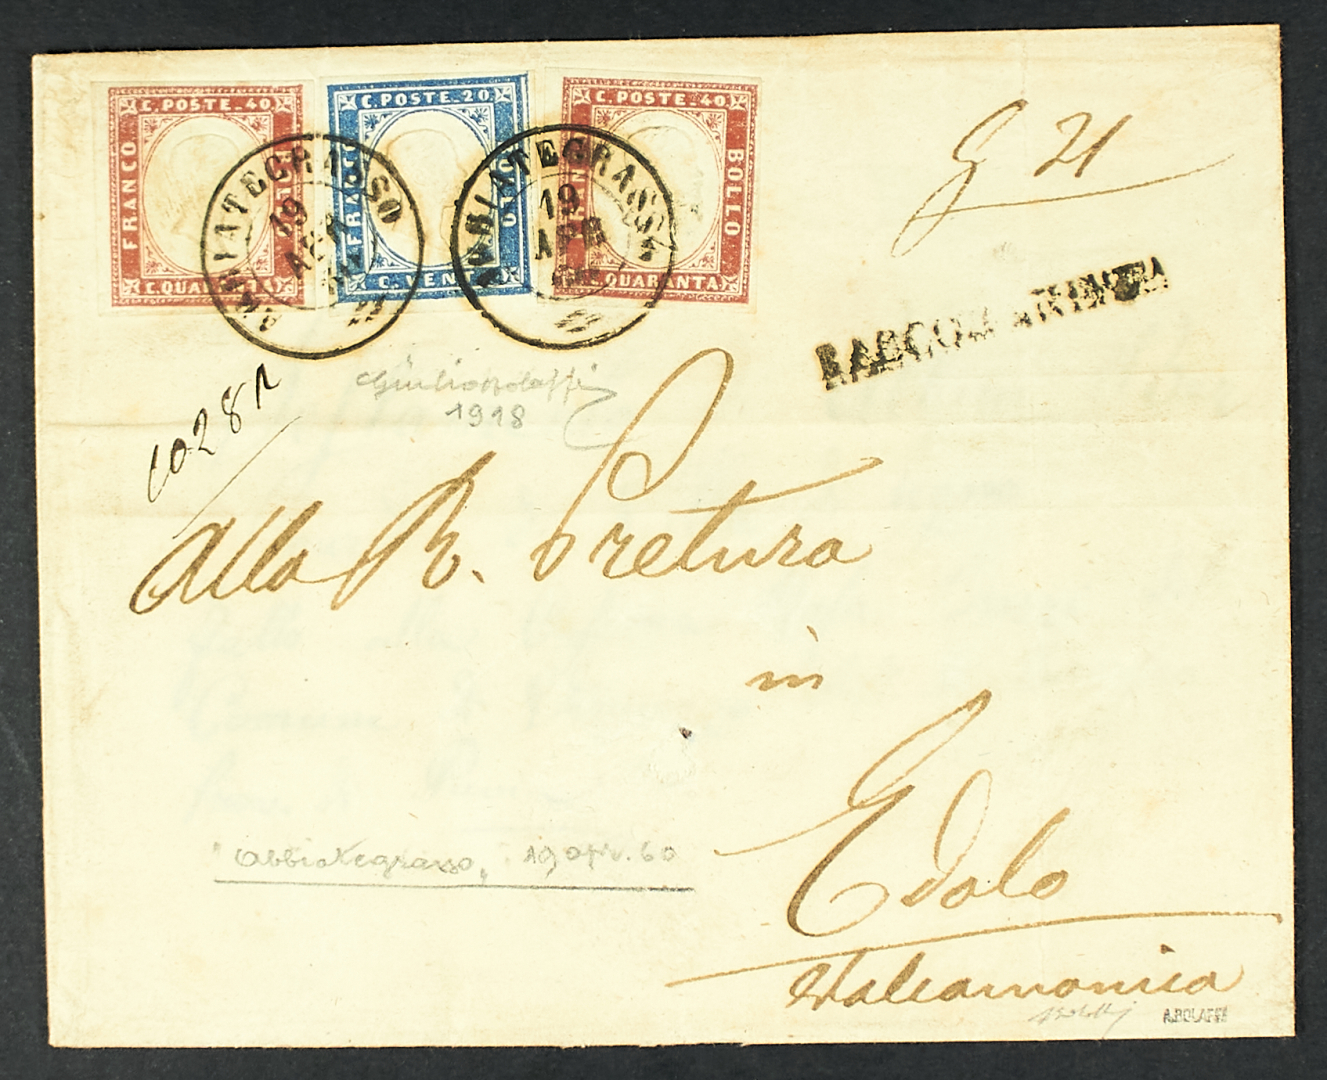 C. POSTE. 40
FRANCO
C. QUARANTA
C. POSTE. 20
C. POSTE. 40
BOLLO
C. QUARANTA
ABBIATEGRASSO
19
APR
ABBIATEGRASSO
19
APR
G 21
Giulio Bolaffi
1918
Alla R. Pretura
in
Edolo
Valcamonica
"Abbiategrasso" 19 apr. 60
A.BOLAFFI